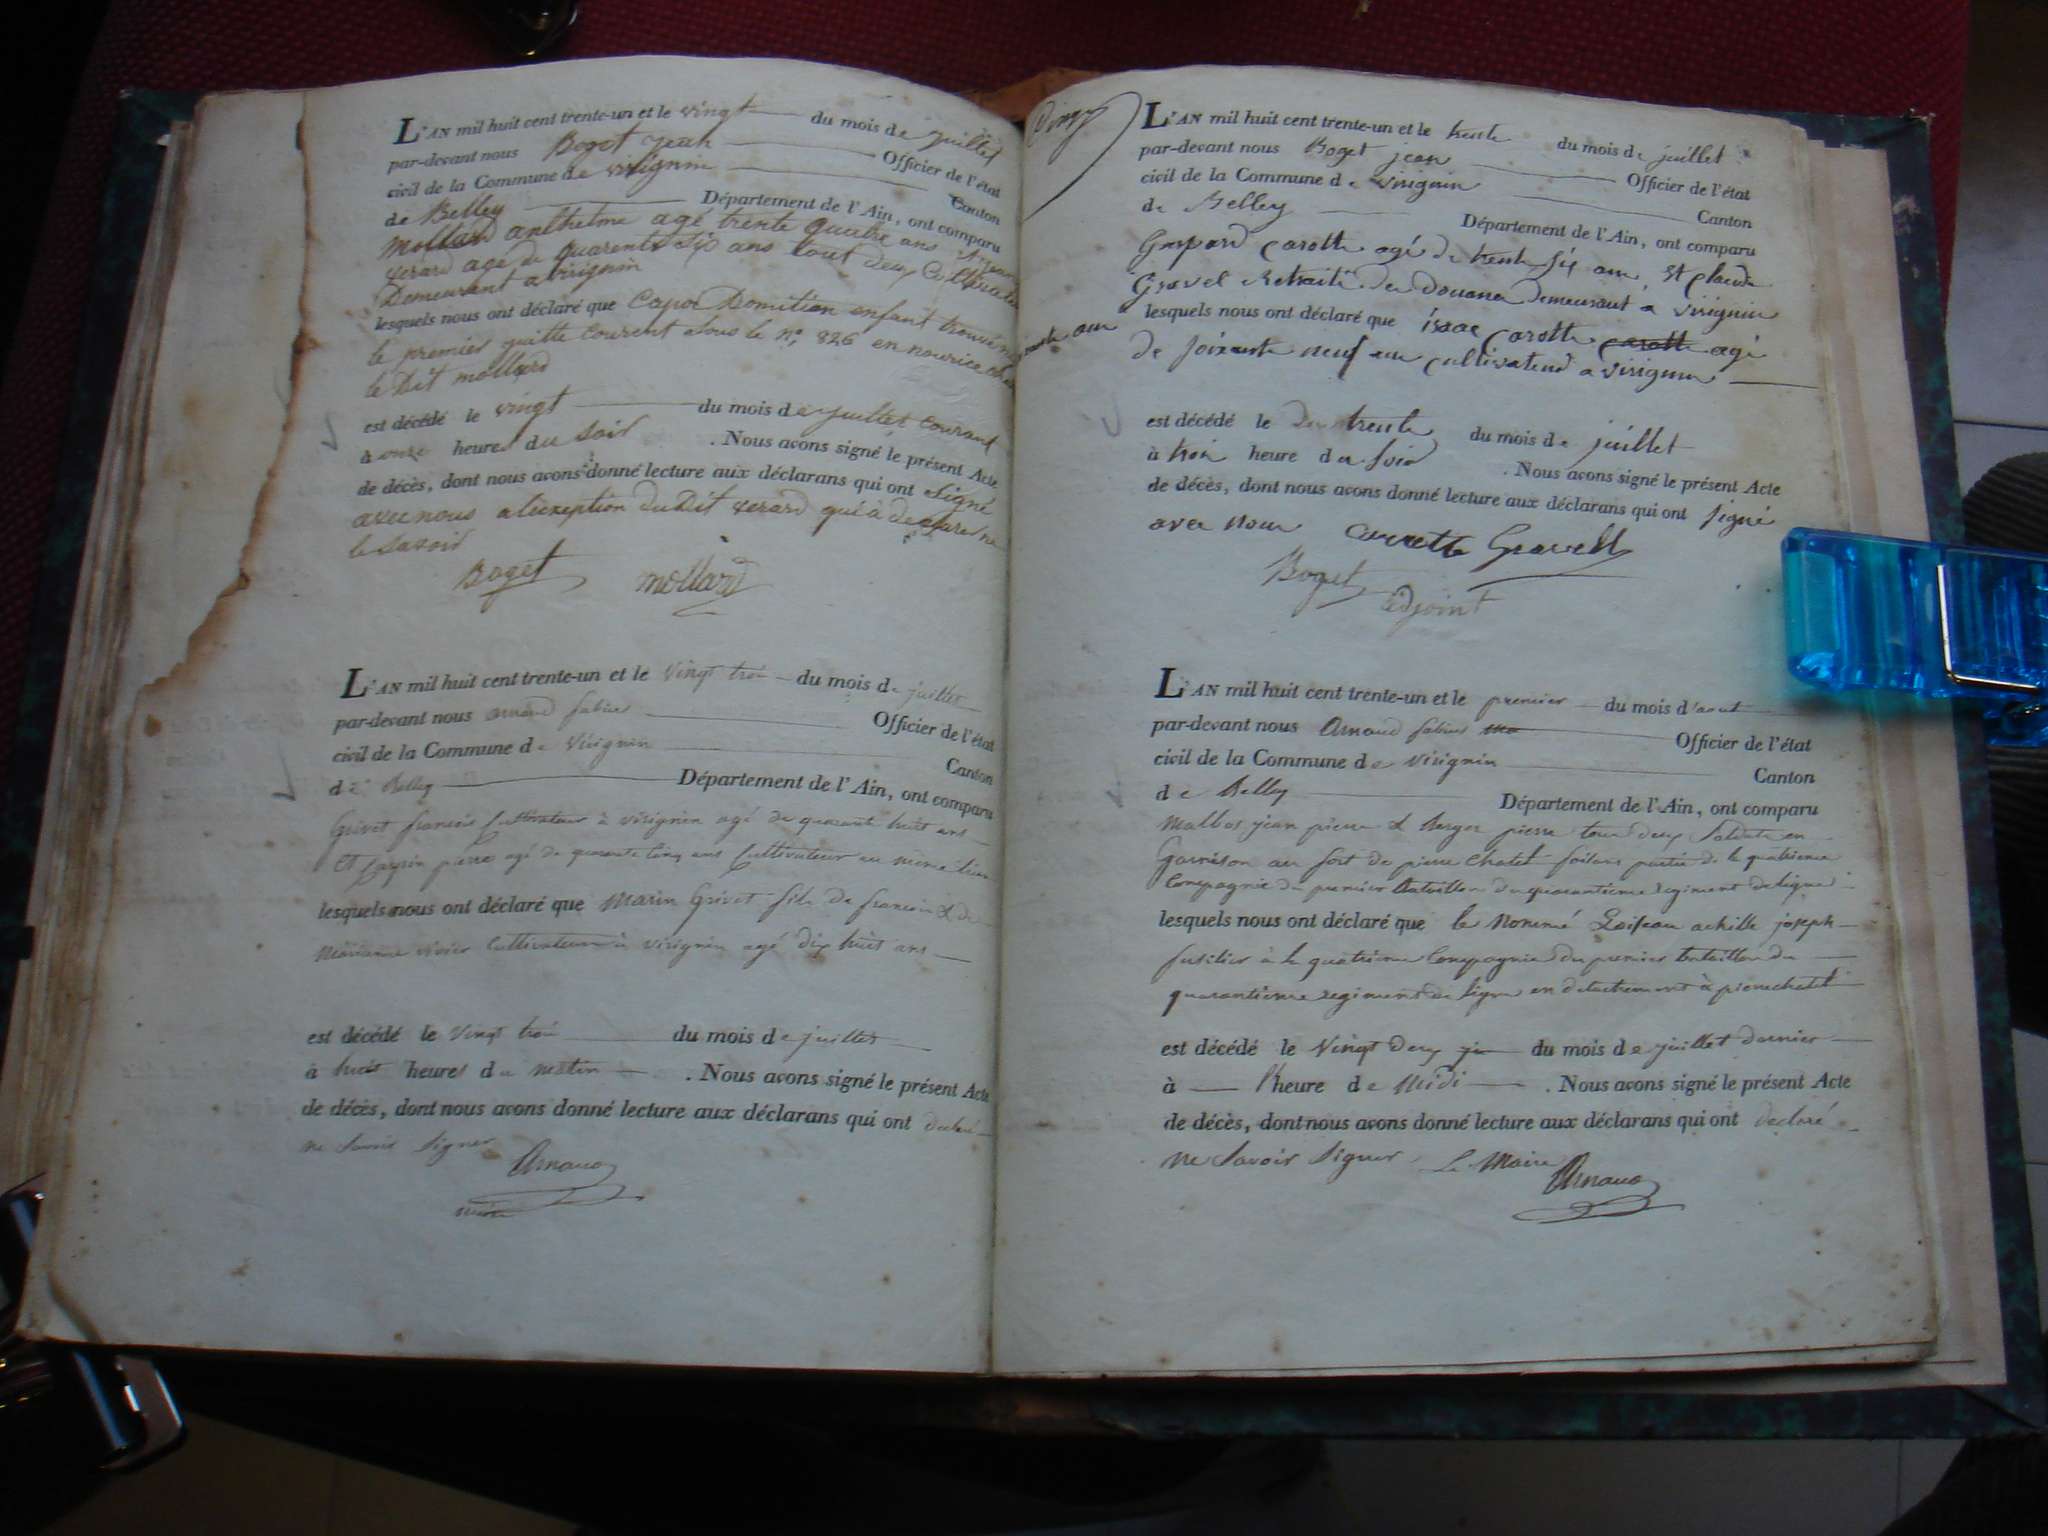 L'AN mil huit cent trente-un et le vingt du mois de juillet
par-devant nous Boget jean Officier de l'état
civil de la Commune de virignin Canton
de Belley Département de l'Ain, ont comparu
mollard anthelme agé trente quatre ans
agé de quarente six ans tout deux
Demeurant a virignin
lesquels nous ont déclaré que Domitien enfant trouvé
le premier juillte courent sous le n° 826 en nourice chez
le Dit mollard
est décédé le vingt du mois de juillet courant
à onze heures du soir . Nous avons signé le présent Acte
de décès, dont nous avons donné lecture aux déclarans qui ont signé
avec nous a lexeption du Dit qui à declare ne
le savoir
Boget mollard
L'AN mil huit cent trente-un et le vingt troi du mois de juillet
par-devant nous arnaud sabin Officier de l'état
civil de la Commune de virignin Canton
de Belley Département de l'Ain, ont comparu
Grivet francois Cultivateur à virignin agé de quarante huit ans
et pierre agé de quarente cinq ans Cultivateur au même lieu
lesquels nous ont déclaré que Marin Grivet fils de francois & de
marianne vivier Cultivateur à virignin agé dix huit ans
est décédé le vingt troi du mois de juillet
à huit heures du matin . Nous avons signé le présent Acte
de décès, dont nous avons donné lecture aux déclarans qui ont declaré
ne savoir signer
Arnaud
L'AN mil huit cent trente-un et le trente du mois de juillet
par-devant nous Boget jean Officier de l'état
civil de la Commune de virignin Canton
de Belley Département de l'Ain, ont comparu
Gaspard Carotte agé de trente six ans, et claude
Gravel Retraité des douanes demeurant a virignin
lesquels nous ont déclaré que isaac Carotte carotte agé
de soixante neuf ans cultivateur a virignin
est décédé le trente du mois de juillet
à troi heure du soir . Nous avons signé le présent Acte
de décès, dont nous avons donné lecture aux déclarans qui ont signé
avec nous carrette Gravell
Boget adjoint
L'AN mil huit cent trente-un et le premier du mois d'aout
par-devant nous Arnaud sabin Officier de l'état
civil de la Commune de virignin Canton
de Belley Département de l'Ain, ont comparu
Malbos jean pierre & Berger pierre tous deux soldats en
Garnison au fort de pierre chatel faisant partie de la quatrieme
Compagnie du premier bataillon du quarantieme regiment de ligne
lesquels nous ont déclaré que le nommé Loiseau achille joseph
fusilier à la quatrieme Compagnie du premier bataillon du
quarantieme regiment de ligne en detachement à pierrechatel
est décédé le vingt deux du mois de juillet dernier
à l'heure de midi . Nous avons signé le présent Acte
de décès, dont nous avons donné lecture aux déclarans qui ont declaré
ne savoir signer Le Maire Arnaud